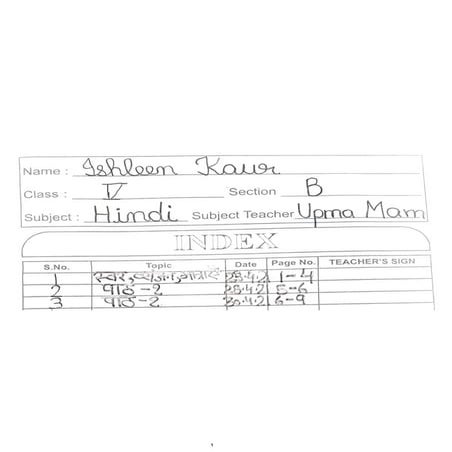 Name : Ishleen Kaur
Class : IV Section B
Subject : Hindi Subject Teacher Upma Mam
INDEX
S.No. Topic Date Page No. TEACHER'S SIGN
1 स्वर, व्यंजन, मात्राएँ 28.4.2 1-4
2 पाठ-2 28.4.2 5-6
3 पाठ-2 30.4.2 6-9